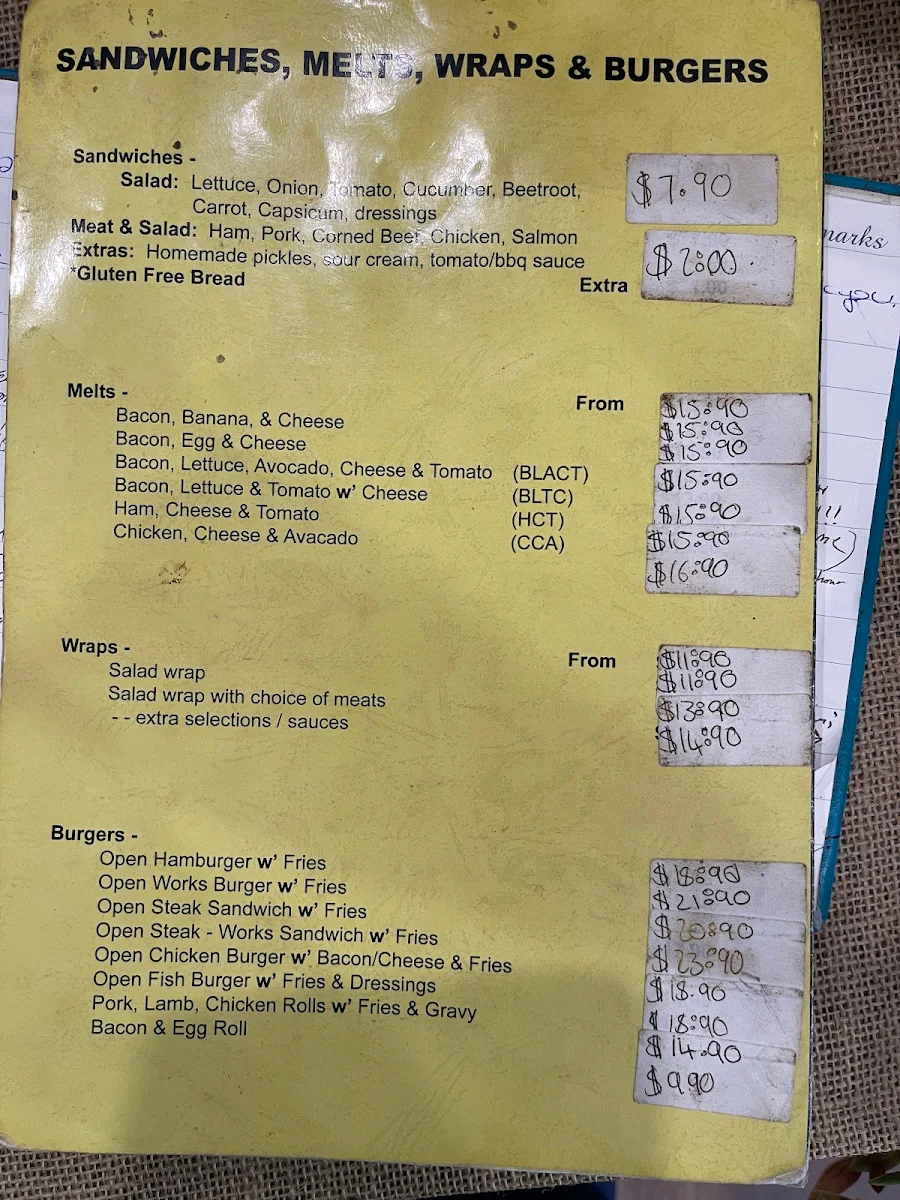 SANDWICHES, MELTS, WRAPS & BURGERS
Sandwiches -
Salad: Lettuce, Onion, Tomato, Cucumber, Beetroot, $7.90
Carrot, Capsicum, dressings
Meat & Salad: Ham, Pork, Corned Beef, Chicken, Salmon
Extras: Homemade pickles, sour cream, tomato/bbq sauce
*Gluten Free Bread
Extra $2:00
narks
you,
Melts -
From $15:90
Bacon, Banana, & Cheese $15:90
Bacon, Egg & Cheese $15:90
Bacon, Lettuce, Avocado, Cheese & Tomato (BLACT) $15:90
Bacon, Lettuce & Tomato w' Cheese (BLTC) $15:90
Ham, Cheese & Tomato (HCT) $15:90
Chicken, Cheese & Avacado (CCA) $16:90
!!!
hour
Wraps -
From $11:90
Salad wrap $11:90
Salad wrap with choice of meats $13:90
- - extra selections / sauces $14:90
Burgers -
Open Hamburger w' Fries $18:90
Open Works Burger w' Fries $21:90
Open Steak Sandwich w' Fries $20:90
Open Steak - Works Sandwich w' Fries $23:90
Open Chicken Burger w' Bacon/Cheese & Fries $18.90
Open Fish Burger w' Fries & Dressings $18:90
Pork, Lamb, Chicken Rolls w' Fries & Gravy $14.90
Bacon & Egg Roll $9.90